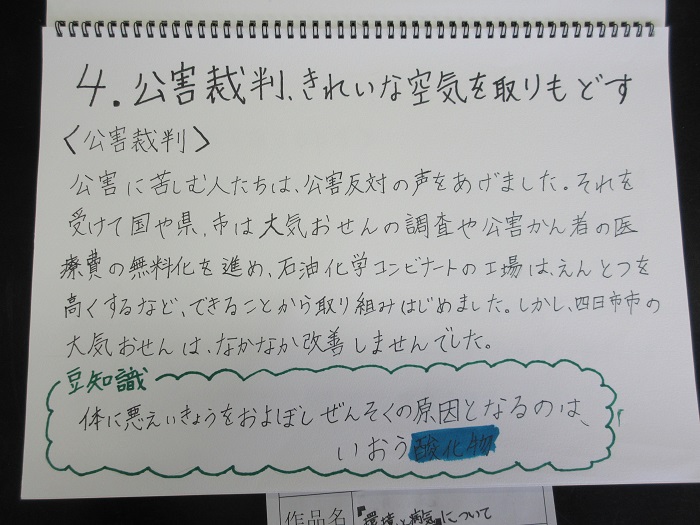 4.公害裁判、きれいな空気を取りもどす
〈公害裁判〉
公害に苦しむ人たちは、公害反対の声をあげました。それを
受けて国や県、市は大気おせんの調査や公害かん者の医
療費の無料化を進め、石油化学コンビナートの工場は、えんとつを
高くするなど、できることから取り組みはじめました。しかし、四日市市の
大気おせんは、なかなか改善しませんでした。
豆知識
体に悪えいきょうをおよぼしぜんそくの原因となるのは、
いおう酸化物
作品名 『環境と病気』について